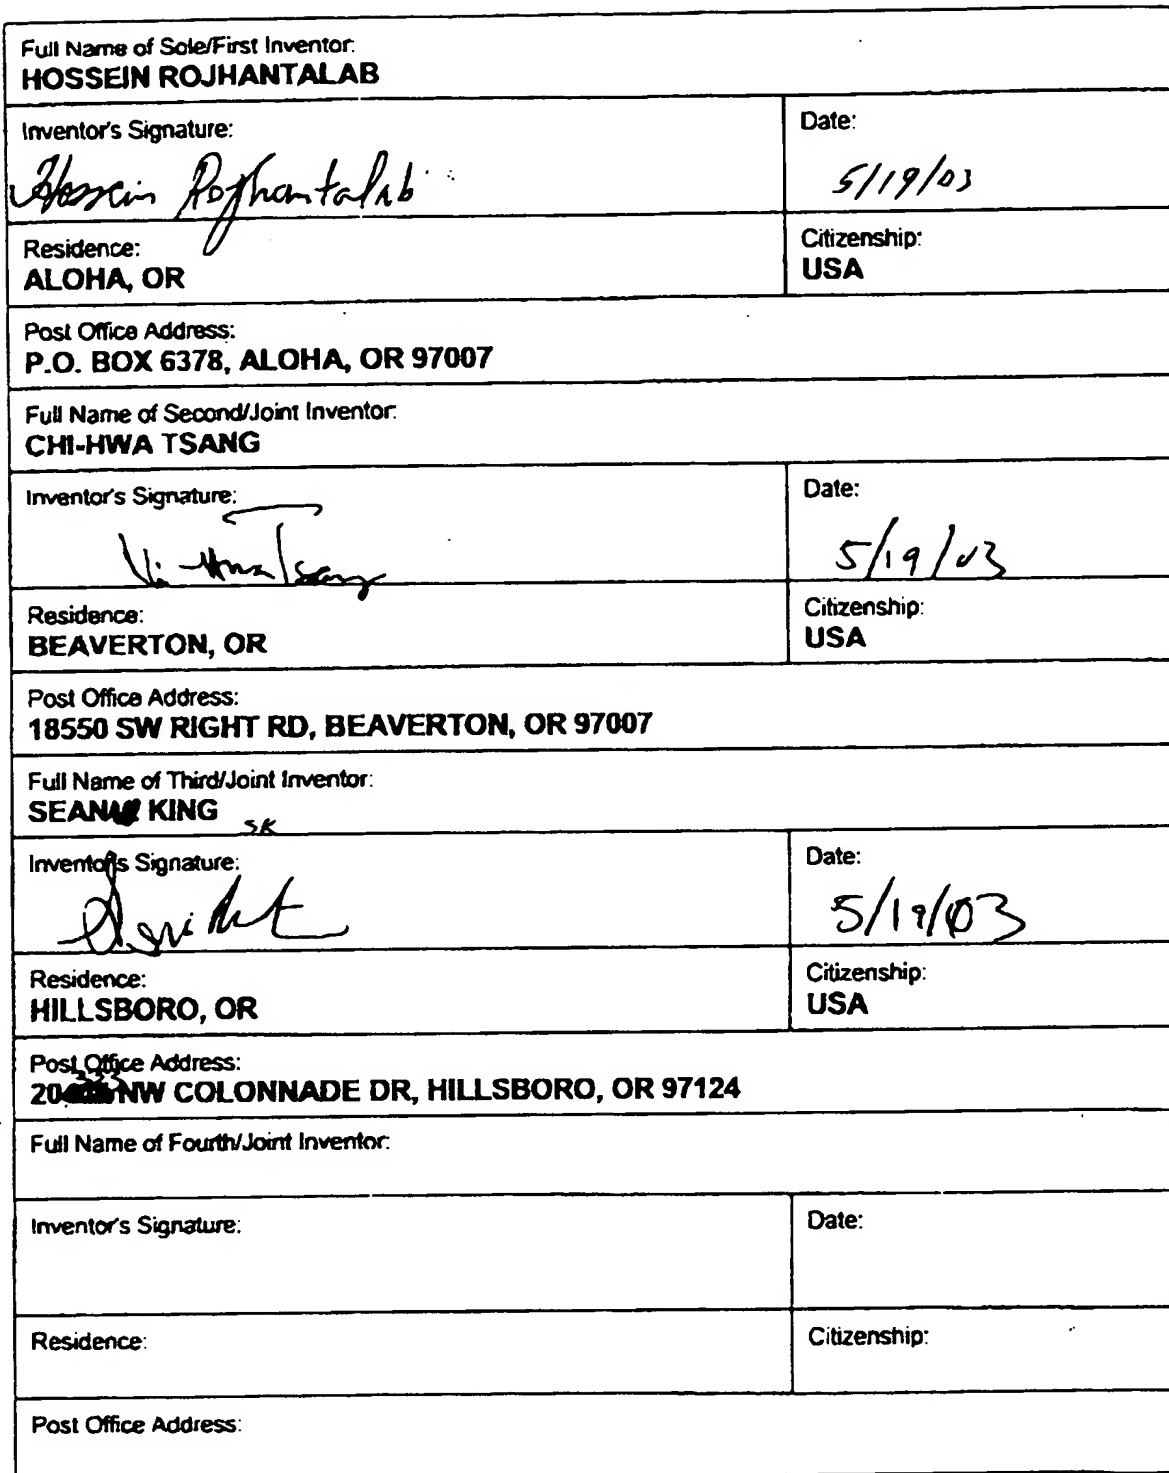 Full Name of Sole/First Inventor:
HOSSEIN ROJHANTALAB
Inventor's Signature:
Date:
Hossein Rojhantalab
5/19/03
Residence:
Citizenship:
ALOHA, OR
USA
Post Office Address:
P.O. BOX 6378, ALOHA, OR 97007
Full Name of Second/Joint Inventor:
CHI-HWA TSANG
Inventor's Signature:
Date:
Chi-Hwa Tsang
5/19/03
Residence:
Citizenship:
BEAVERTON, OR
USA
Post Office Address:
18550 SW RIGHT RD, BEAVERTON, OR 97007
Full Name of Third/Joint Inventor:
SEAN KING
SK
Inventor's Signature:
Date:
5/19/03
Residence:
Citizenship:
HILLSBORO, OR
USA
Post Office Address:
NW COLONNADE DR, HILLSBORO, OR 97124
Full Name of Fourth/Joint Inventor:
Inventor's Signature:
Date:
Residence:
Citizenship:
Post Office Address: